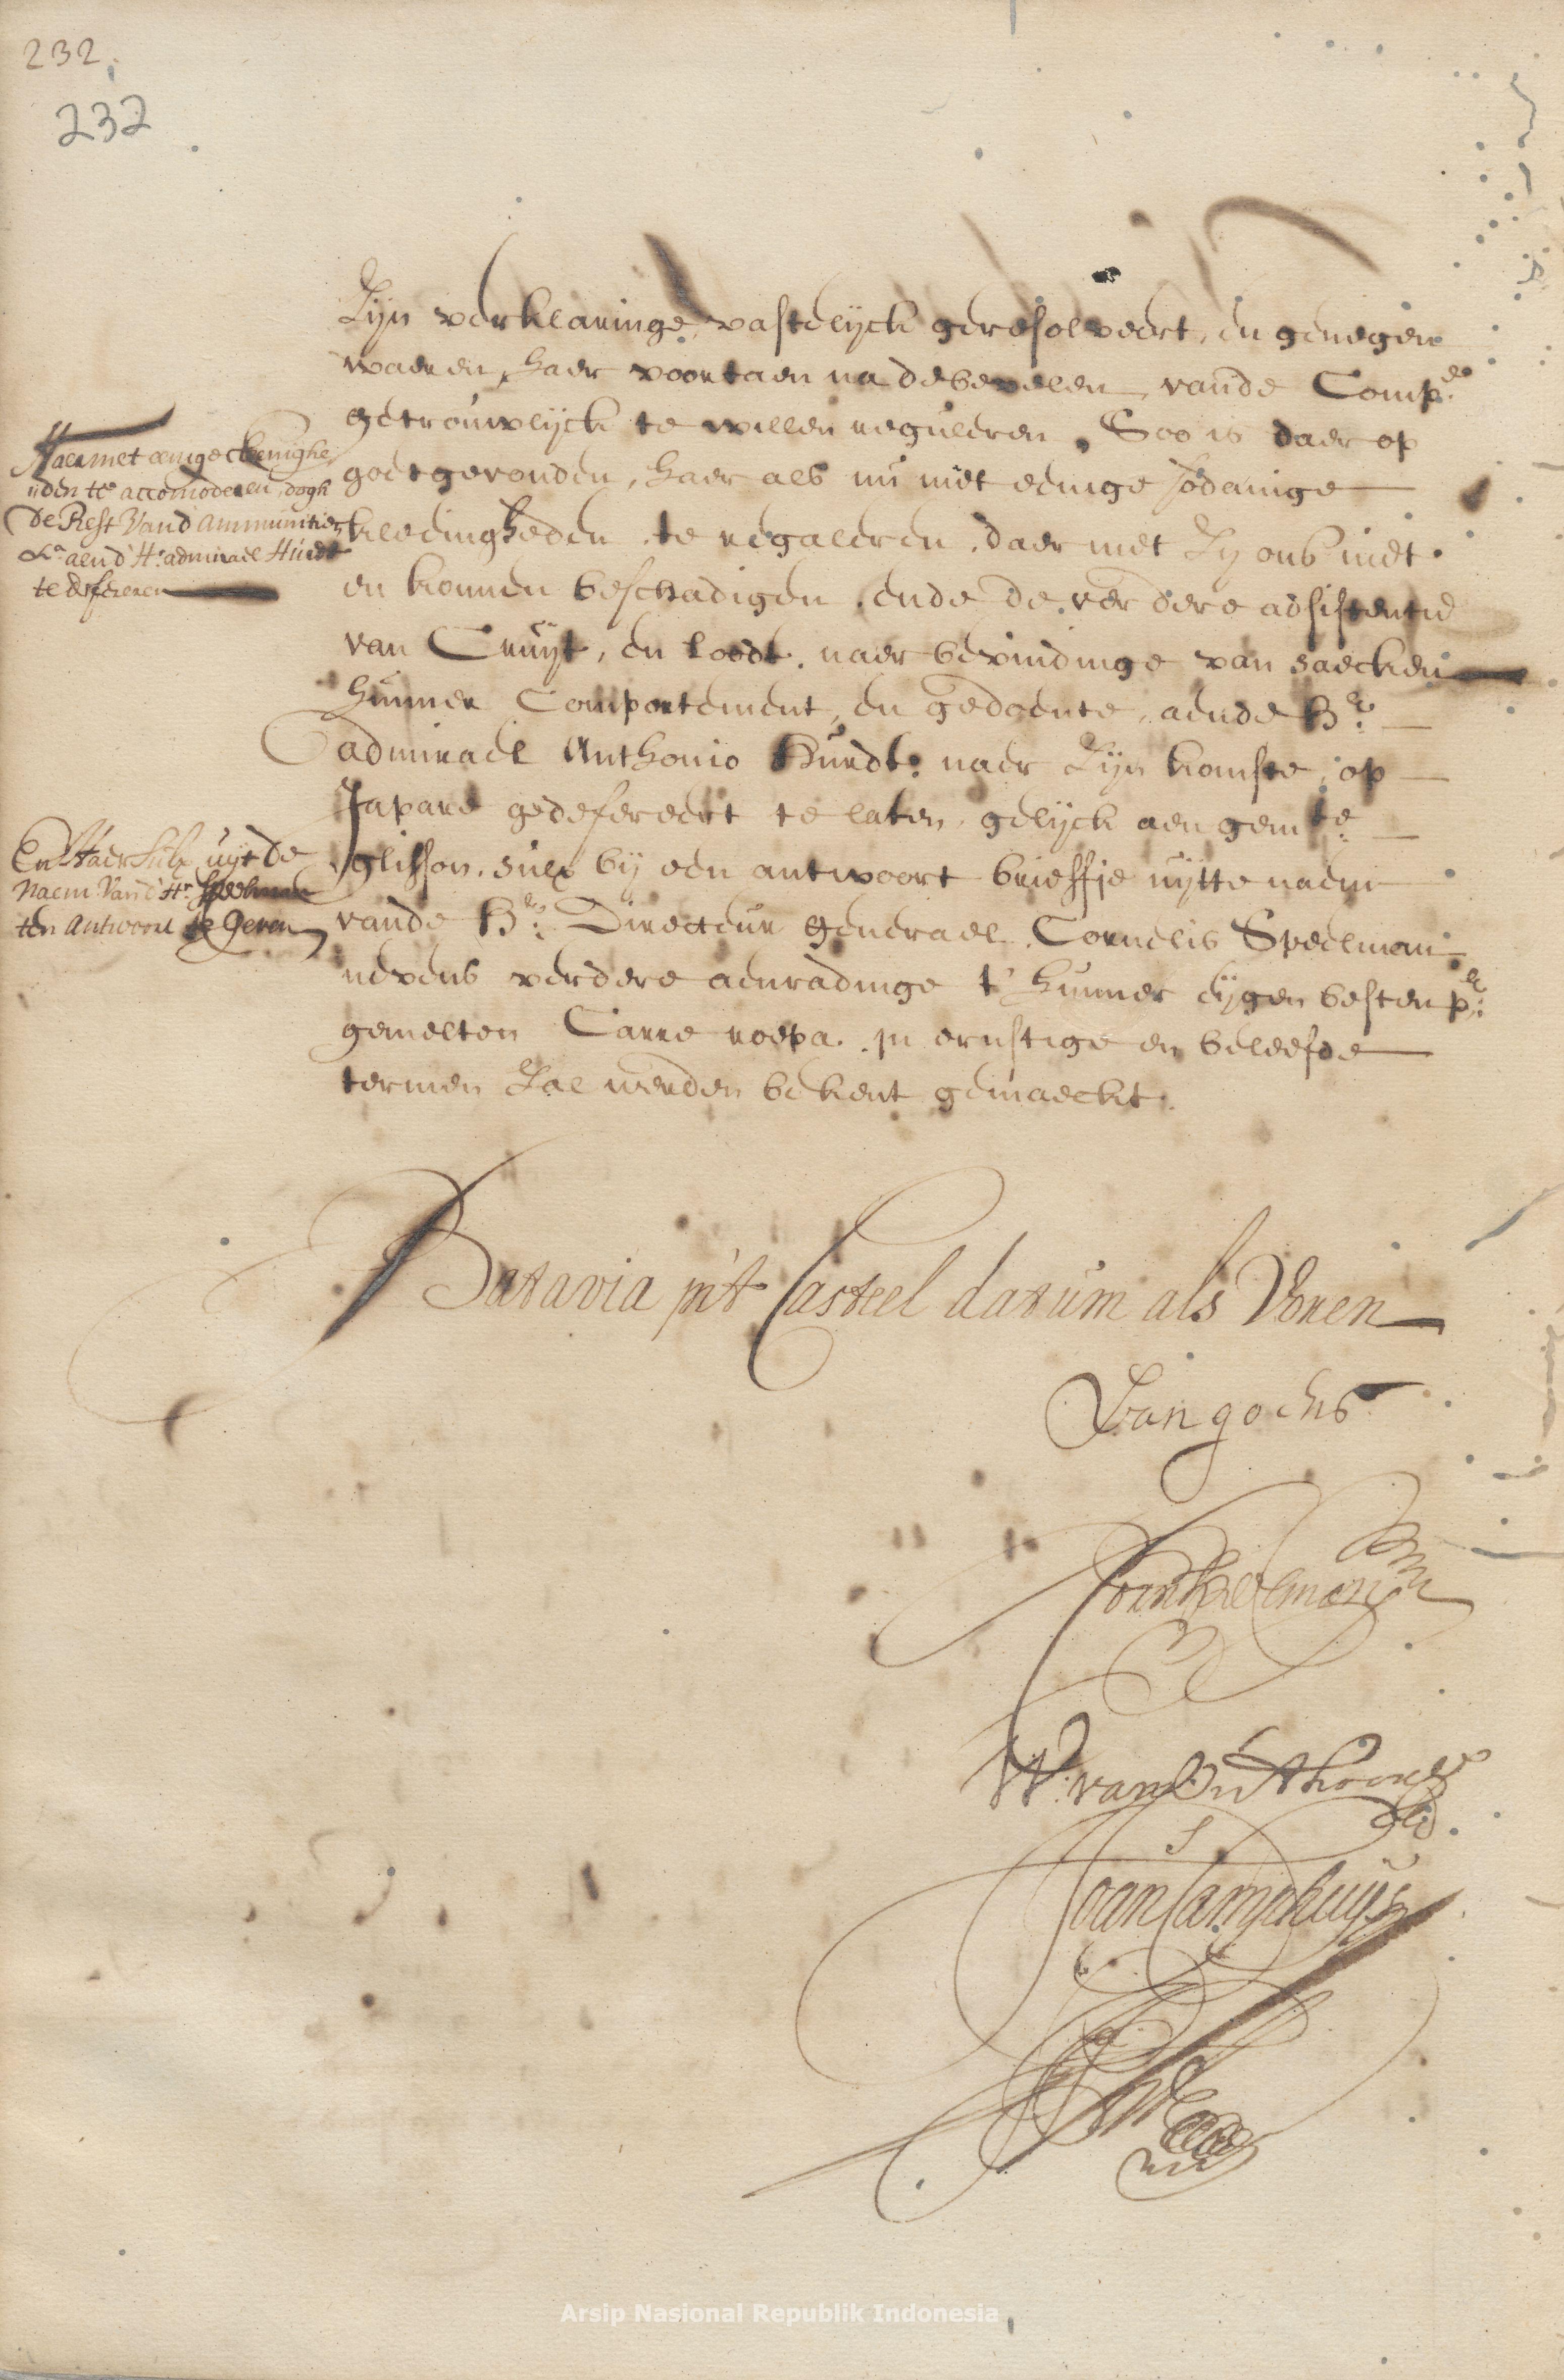 232
232
Zijn verklaringe, vastelijck geresolveert, en genegen
waeren, haer voortaen na de bevelen vande Compe.
getrouwelijck te willen reguleren, Soo is daer op
goetgevonden, haer als nu met eenige sodanige
kleeinigheden te regaleren, daer met Zij ons niet
en konnen beschadigen, ende de verdere adsistentie
van Cruijt, en loodt, naer bevindinge van saecken
hunner Comportement, en gedoente, aende Hr.
admirael Anthonio Hurdt: naer Zijn komste, op
Japara gedefereert te laten, gelijck aen gemte.
glisson, sulx bij een antwoort brieffje uijtte naem
vande Hr. Directeur generael Cornelis Speelman
nevens verdere aenradinge t' hunner eijgen besten pr.
gemelten Carre roepa. in ernstige en beleefde
termen Zal werden bekent gemaeckt.
Haer met eenige kleenighe
ijden te accomoderen, dogh
de Rest Vand' ammunitie
&a. aend' Hr. admirael Hurdt
te defereren
En Haer Sulx uijt de
Naem Vand' Hr. Speelman
ten Antwoort te geven
Batavia in't Casteel datum als Voren
Van goens
W. van Outhoorn
Joan Camphuys
Arsip Nasional Republik Indonesia